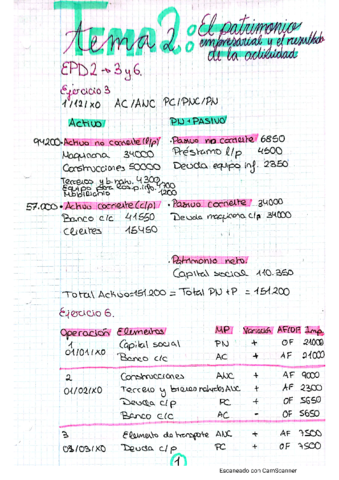 Tema 2: El patrimonio
empresarial y el resultado
de la actividad
EPD2 → 3 y 6.
Ejercicio 3
1/12/X0 AC/ANC PC/PNC/PN
Activo PN + PASIVO
94200 · Activo no corriente (l/p) · Pasivo no corriente 6850
Maquinaria 34000 Préstamo l/p 4500
Construcciones 50000 Deuda equipo inf. 2350
Terrenos y b. nat. 4300
Equipo para 4700
Mobiliario 1200
57.000 · Activo corriente (c/p) · Pasivo corriente 34000
Banco c/c 41550 Deuda maquina c/p 34000
Clientes 15450
· Patrimonio neto
Capital social 110.350
Total Activo = 151.200 = Total PN + P = 151.200
Ejercicio 6.
Operación Elementos MP Variación AF/OF Imp.
1 Capital social PN + OF 21000
01/01/X0 Banco c/c AC + AF 21000
2 Construcciones ANC + AF 9000
01/02/X0 Terreno y bienes naturales ANC + AF 2300
Deuda c/p PC + OF 5650
Banco c/c AC - OF 5650
3 Elemento de transporte ANC + AF 7500
03/03/X0 Deuda c/p PC + OF 7500
1
Escaneado con CamScanner